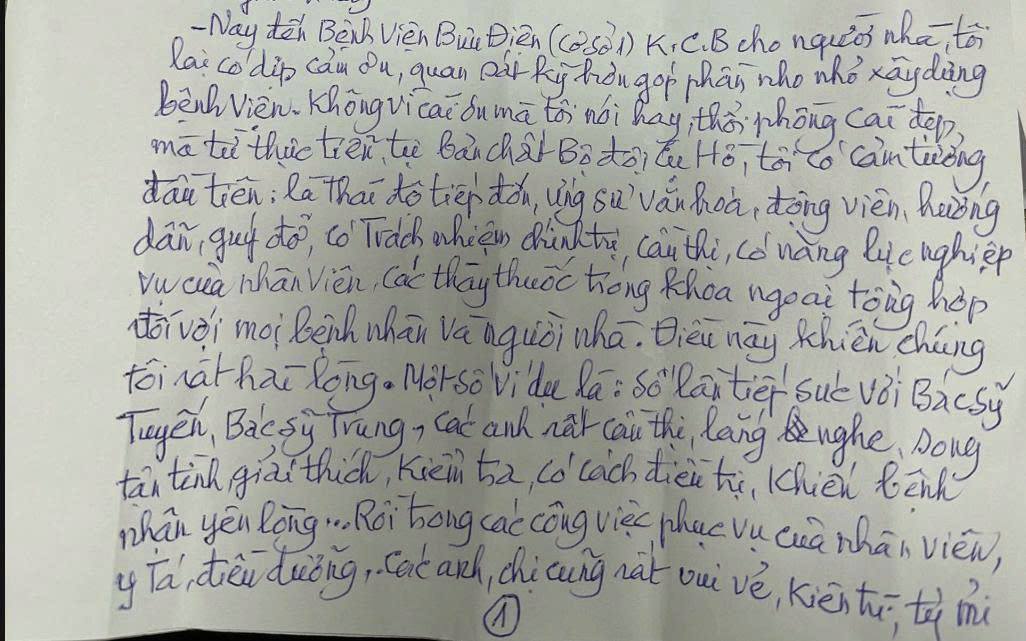 -Nay đến Bệnh Viện Bưu Điện (cơ sở 1) K.C.B cho người nhà, tôi
lại có dịp cảm ơn, quan sát kỹ hơn góp phần nho nhỏ xây dựng
bệnh viện. Không vì cái ơn mà tôi nói hay, thổi phồng cái đẹp,
mà từ thực tiễn, từ bản chất Bộ đội Cụ Hồ, tôi có cảm tưởng
đầu tiên: là Thái độ tiếp đón, ứng sử văn hoá, động viên, hướng
dẫn, giúp đỡ, có Trách nhiệm chính trị, cầu thị, có năng lực nghiệp
vụ của nhân viên, các thầy thuốc trong khoa ngoại tổng hợp
đối với mọi bệnh nhân và người nhà. Điều này khiến chúng
tôi rất hài lòng. Một số ví dụ là: Số lần tiếp súc với Bác sỹ
Tuyến, Bác sỹ Trung, các anh rất cầu thị, lắng nghe, song
tận tình giải thích, kiểm tra, có cách điều trị, khiến bệnh
nhân yên lòng... Rồi trong các công việc phục vụ của nhân viên,
y Tá, điều dưỡng,.. các anh, chị cũng rất vui vẻ, kiên trì, tỷ mỉ
1